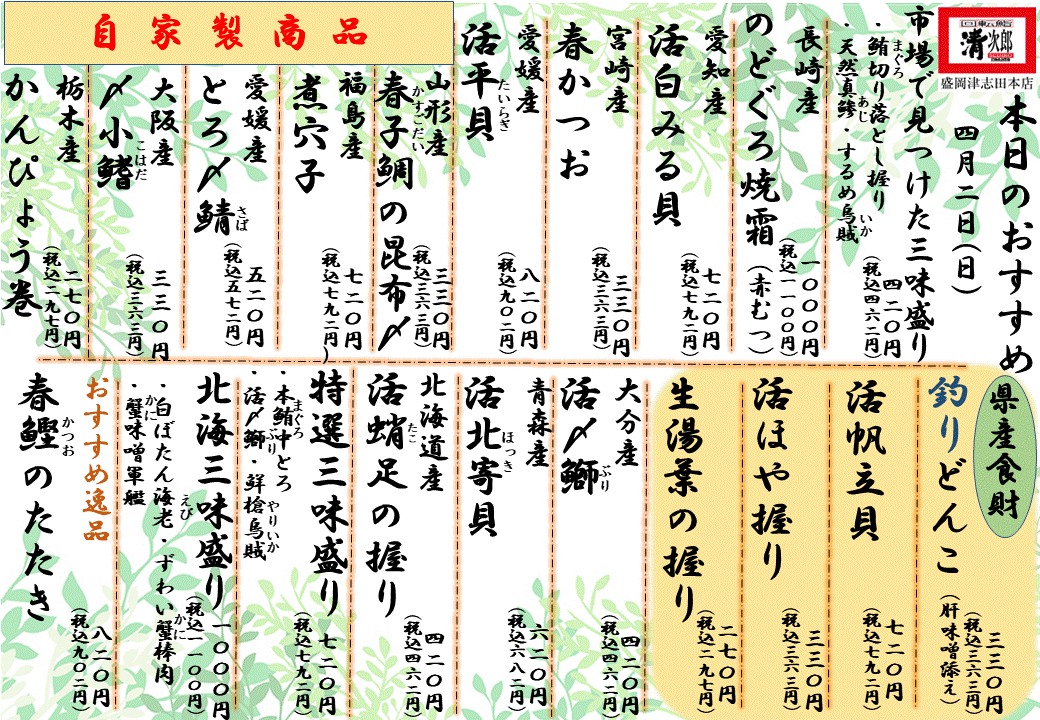 回転鮨
清次郎
盛岡津志田本店
本日のおすすめ
四月二日(日)
市場で見つけた三味盛り
・鮪切り落とし握り
まぐろ
・天然真鯵・するめ烏賊
あじ
いか
四二〇円
(税込四六二円)
長崎産
一〇〇〇円
(税込一一〇〇円)
のどぐろ焼霜(赤むつ)
愛知産
七二〇円
(税込七九二円)
活白みる貝
宮崎産
三三〇円
(税込三六三円)
春かつお
愛媛産
八二〇円
(税込九〇二円)
活平貝
たいらぎ
自家製商品
山形産
三三〇円
(税込三六三円)
春子鯛の昆布〆
かすごだい
福島産
七二〇円
(税込七九二円)
煮穴子
愛媛産
五二〇円
(税込五七二円)
とろ〆鯖
さば
大阪産
三三〇円
(税込三六三円)
〆小鰭
こはだ
栃木産
二七〇円
(税込二九七円)
かんぴょう巻
県産食財
三三〇円
(税込三六三円)
釣りどんこ
(肝味噌添え)
七二〇円
(税込七九二円)
活帆立貝
三三〇円
(税込三六三円)
活ほや握り
二七〇円
(税込二九七円)
生湯葉の握り
大分産
四二〇円
(税込四六二円)
活〆鰤
ぶり
青森産
六二〇円
(税込六八二円)
活北寄貝
ほっき
北海道産
四二〇円
(税込四六二円)
活蛸足の握り
たこ
特選三味盛り
・本鮪中とろ
まぐろ
・活〆鰤・鮮槍烏賊
ぶり
やりいか
七二〇円
(税込七九二円)
北海三味盛り
・白ぼたん海老・ずわい蟹棒肉
えび
かに
・蟹味噌軍艦
かに
一〇〇〇円
(税込一一〇〇円)
おすすめ逸品
八二〇円
(税込九〇二円)
春鰹のたたき
かつお